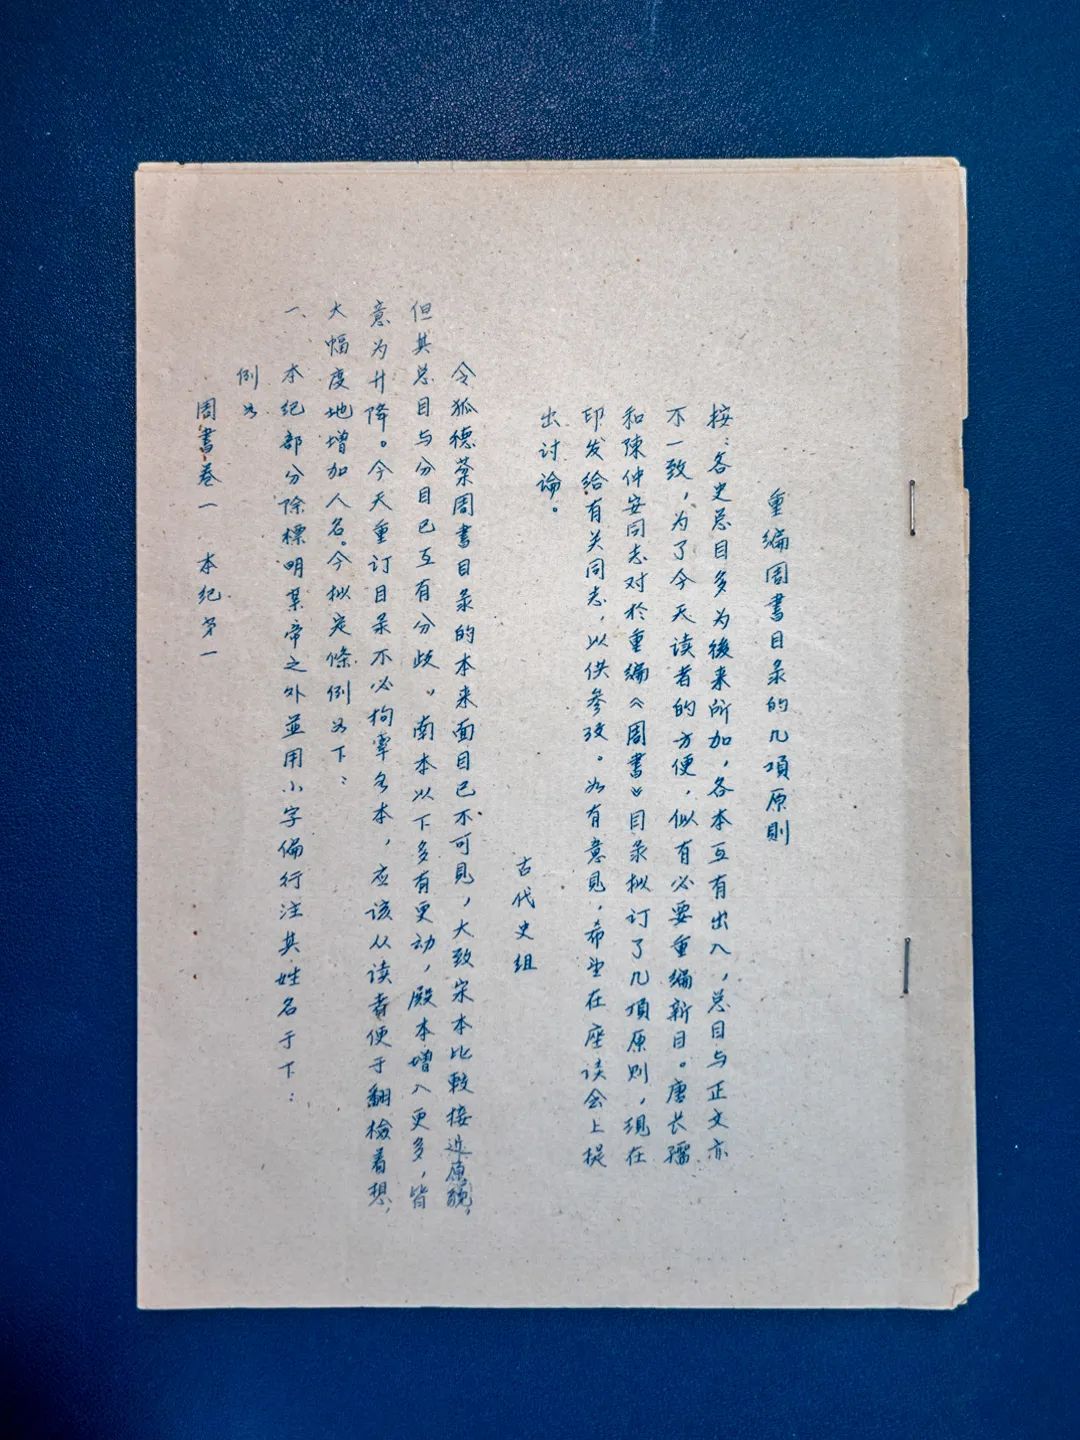 重编周書目录的几項原則
按：各史总目多为後来所加，各本互有出入，总目与正文亦
不一致，为了今天读者的方便，似有必要重编新目。唐长孺
和陳仲安同志对於重编《周書》目录拟订了几項原则，现在
印发给有关同志，以供参攷。如有意見，希望在座谈会上提
出讨论。
古代史组
令狐德棻周書目录的本来面目已不可見，大致宋本比較接近原貌，
但其总目与分目已互有分歧。南本以下多有更动，殿本增入更多，皆
意为升降。今天重订目录不必拘牽各本，应该从读者便于翻檢着想，
大幅度地增加人名。今拟定條例如下：
一、本纪部分除標明某帝之外並用小字偏行注其姓名于下：
例如
周書卷一　本纪第一